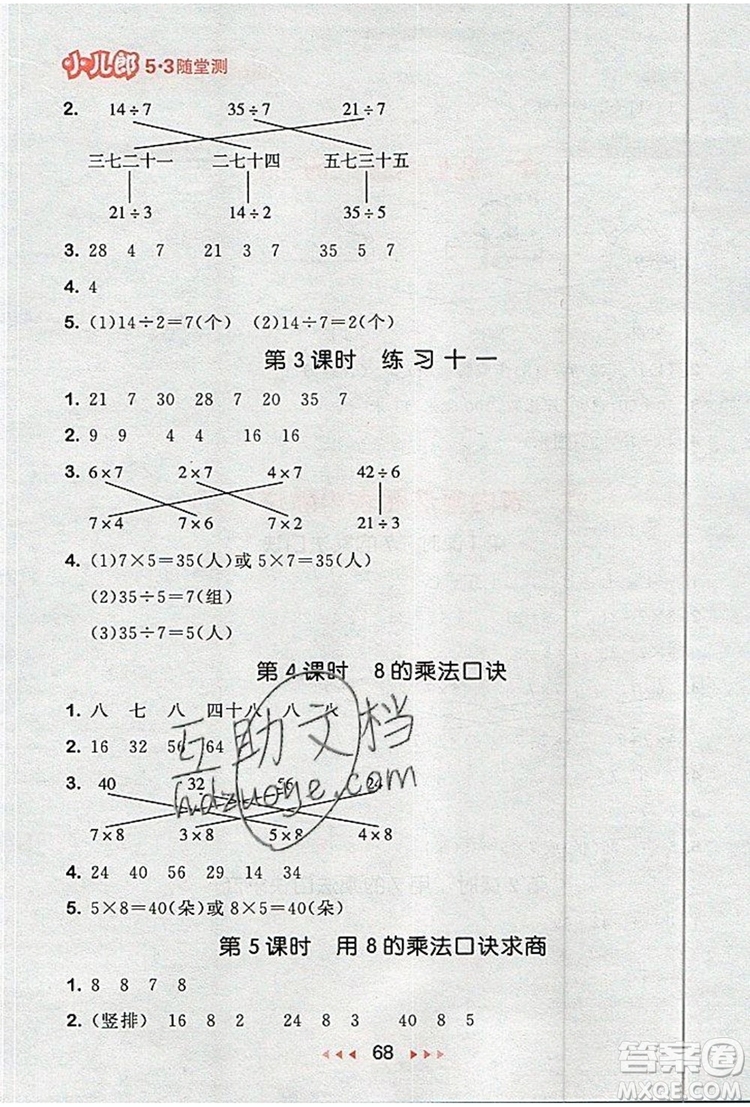 小儿郎 5·3随堂测
2. 14÷7 35÷7 21÷7
三七二十一 二七十四 五七三十五
21÷3 14÷2 35÷5
3. 28 4 7 21 3 7 35 5 7
4. 4
5. (1)14÷2=7(个) (2)14÷7=2(个)
第3课时 练习十一
1. 21 7 30 28 7 20 35 7
2. 9 9 4 4 16 16
3. 6×7 2×7 4×7 42÷6
7×4 7×6 7×2 42÷7
4. (1)7×5=35(人)或 5×7=35(人)
(2)35÷5=7(组)
(3)35÷7=5(人)
第4课时 8的乘法口诀
1. 八 七 八 四十八 八 八
2. 16 32 56 64
3. 40 32 56 24
7×8 3×8 5×8 4×8
4. 24 40 56 29 14 34
5. 5×8=40(朵)或 8×5=40(朵)
第5课时 用8的乘法口诀求商
1. 8 8 7 8
2. (竖排) 16 8 2 24 8 3 40 8 5
68
互助文档
hdzuoye.com
答案圈
MXQE.COM